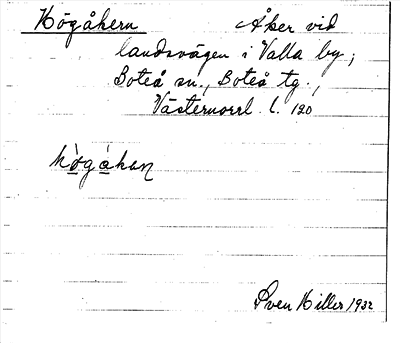 Högåkern Åker vid
landsvägen i Valla by,
Boteå sn., Boteå tg.,
Västernorrl. l. 120
hògàkan
Sven Hiller 1932